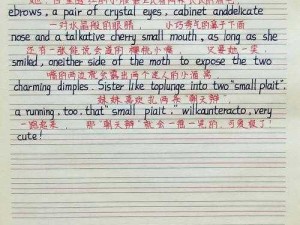 ebrows, a pair of crystal eyes, cabinet anddelicate
一对水晶般的眼睛 小巧秀气的鼻子下面
nose and a talkative cherry small mouth, as long as she
还有一张能说会道的樱桃小嘴 只要她一笑
smiled, oneither side of the moth to expose the two
嘴的两边就会露出两个迷人的小酒窝
charming dimples. Sister like toplunge into two"small plait".
妹妹喜欢扎两条"朝天辫"
a running, too. that"small piait," willcaunteracto, very
一跑起来 那"朝天辫"就会一摇一晃的, 可爱极了!
cute!